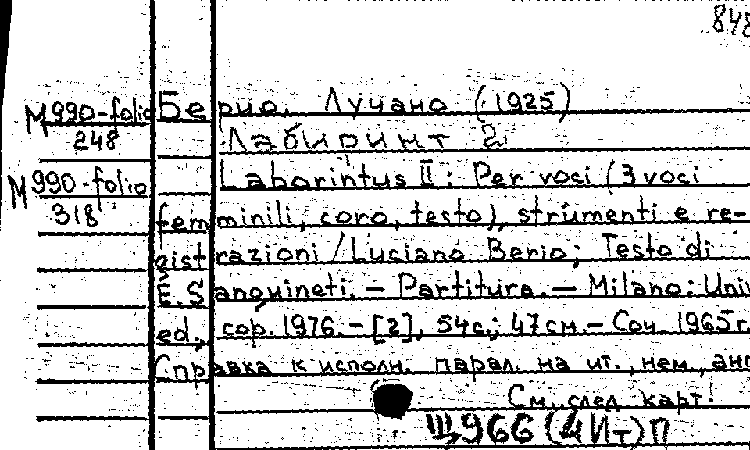 848
М 990-folio Берио, Лучано (1925)
248 Лабиринт 2
М 990-folio Laborintus II: Per voci (3 voci
318 femminili, coro, testo), strumenti e re-
gistrazioni / Luciano Berio; Testo di
E. Sanguineti. — Partitura. — Milano: Univ
ed., cop. 1976. — [2], 54 с.; 47 см. — Соч. 1965 г
Справка к исполн. парал. на ит., нем., анг
См. след. карт!
Щ966(4Ит)П